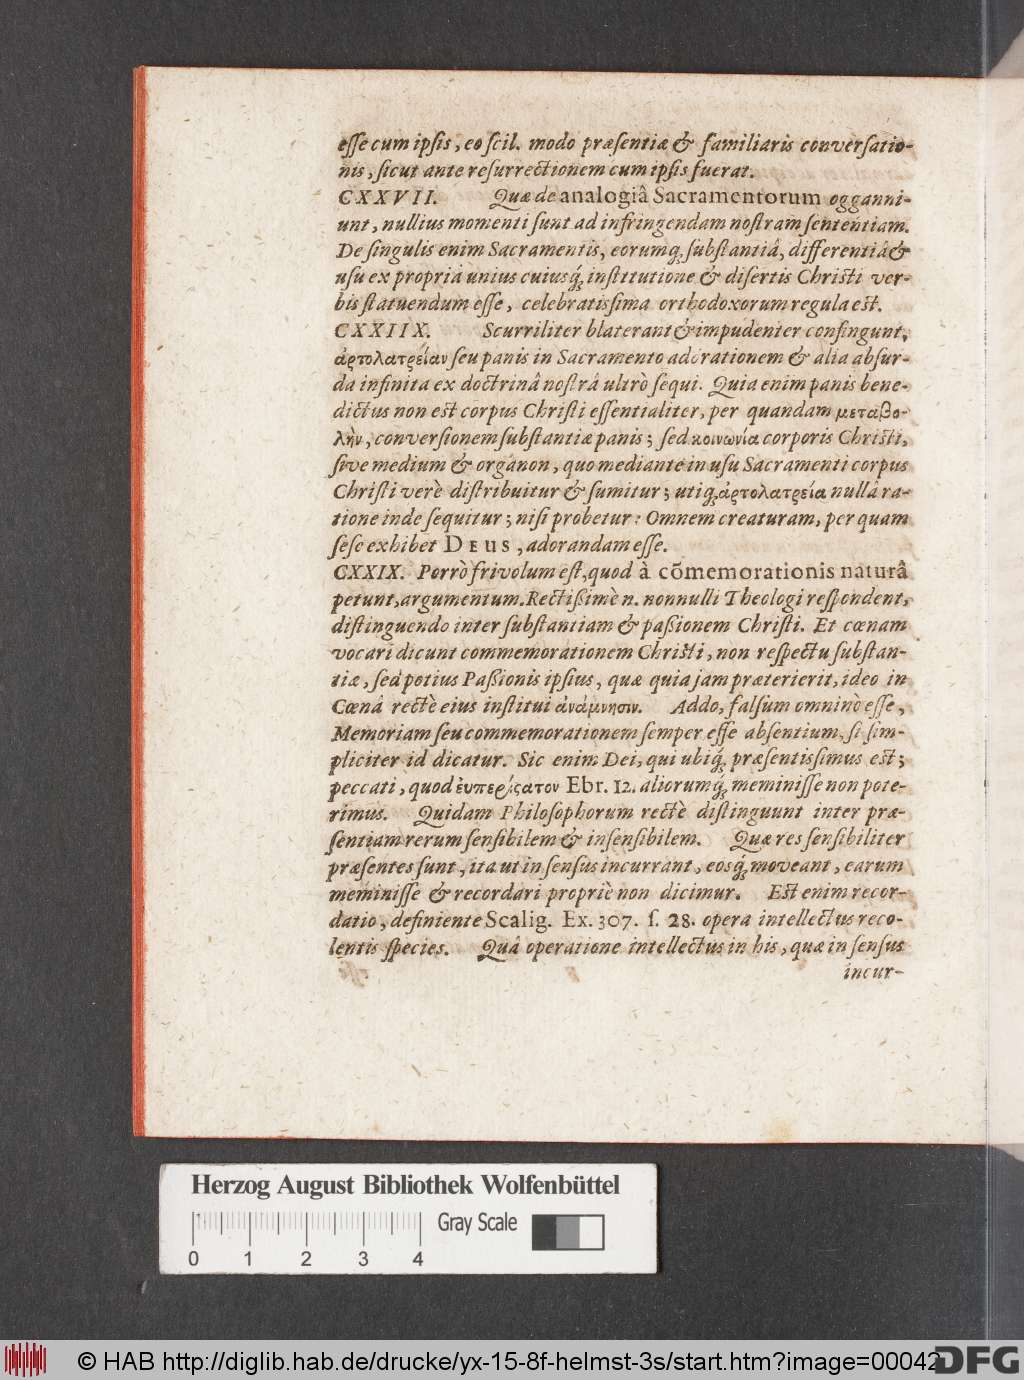 esse cum ipsis, eo scil. modo præsentiæ & familiaris conversatio-
nis, sicut ante resurrectionem cum ipsis fuerat.
CXXVII. Quæ de analogiâ Sacramentorum ogganni-
unt, nullius momenti sunt ad infringendam nostram sententiam.
De singulis enim Sacramentis, eorumq́, substantiâ, differentiâ &
usu ex propriâ unius cuiusq́, institutione & disertis Christi ver-
bis statuendum esse, celebratissima orthodoxorum regula est.
CXXIIX. Scurriliter blaterant & impudenter confingunt,
ἀρτολατρείαν seu panis in Sacramento adorationem & alia absur-
da infinita ex doctrinâ nostrâ ultrò sequi. Quia enim panis bene-
dictus non est corpus Christi essentialiter, per quandam μεταβο-
λὴν, conversionem substantiæ panis; sed κοινωνία corporis Christi,
sive medium & organon, quo mediante in usu Sacramenti corpus
Christi verè distribuitur & sumitur; utiq́, ἀρτολατρεία nullâ ra-
tione inde sequitur; nisi probetur: Omnem creaturam, per quam
sese exhibet DEUS, adorandam esse.
CXXIX. Porrò frivolum est, quod à cõmemorationis naturâ
petunt, argumentum. Rectißimè n. nonnulli Theologi respondent,
distinguendo inter substantiam & paßionem Christi. Et cœnam
vocari dicunt commemorationem Christi, non respectu substan-
tiæ, sed potius Paßionis ipsius, quæ quia jam præterierit, ideo in
Cœnâ rectè eius institui ἀνάμνησιν. Addo, falsum omninò esse,
Memoriam seu commemorationem semper esse absentium, si sim-
pliciter id dicatur. Sic enim Dei, qui ubiq́, præsentissimus est;
peccati, quod ἐυπερίςατον Ebr. 12. aliorumq́, meminisse non pote-
rimus. Quidam Philosophorum rectè distinguunt inter præ-
sentiam rerum sensibilem & insensibilem. Quæ res sensibiliter
præsentes sunt, ita ut in sensus incurrant, eosq́, moveant, earum
meminisse & recordari propriè non dicimur. Est enim recor-
datio, definiente Scalig. Ex. 307. s. 28. opera intellectus reco-
lentis species. Quâ operatione intellectus in his, quæ in sensus
incur-
Herzog August Bibliothek Wolfenbüttel
Gray Scale
0 1 2 3 4
© HAB http://diglib.hab.de/drucke/yx-15-8f-helmst-3s/start.htm?image=00042
DFG